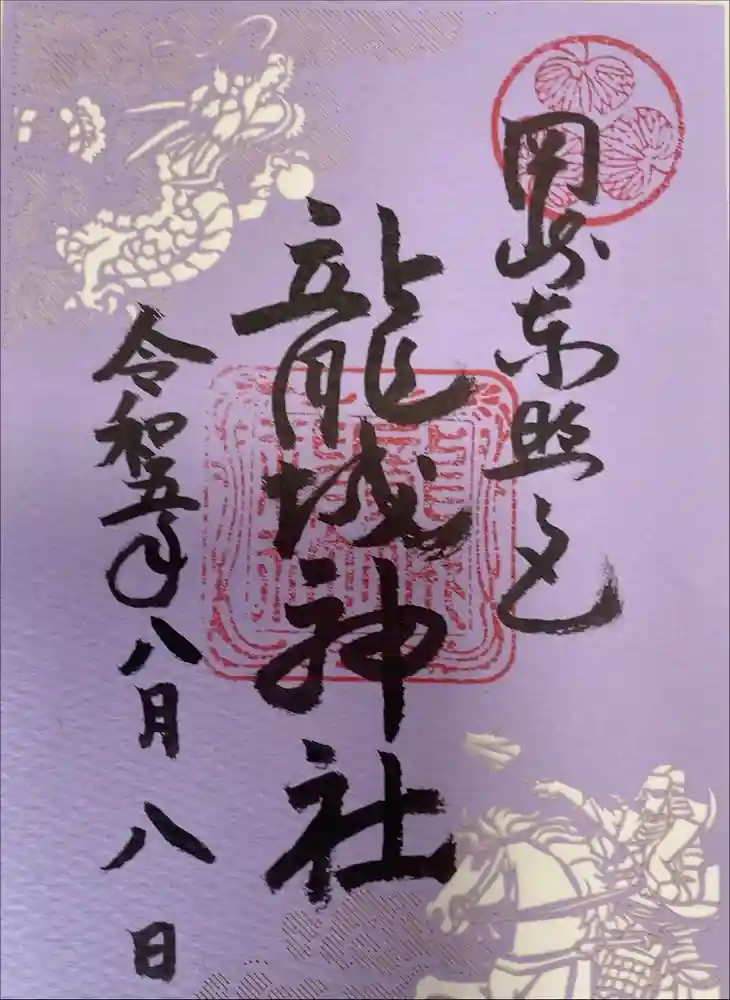 岡崎東照宮
龍城神社
令和五年八月八日